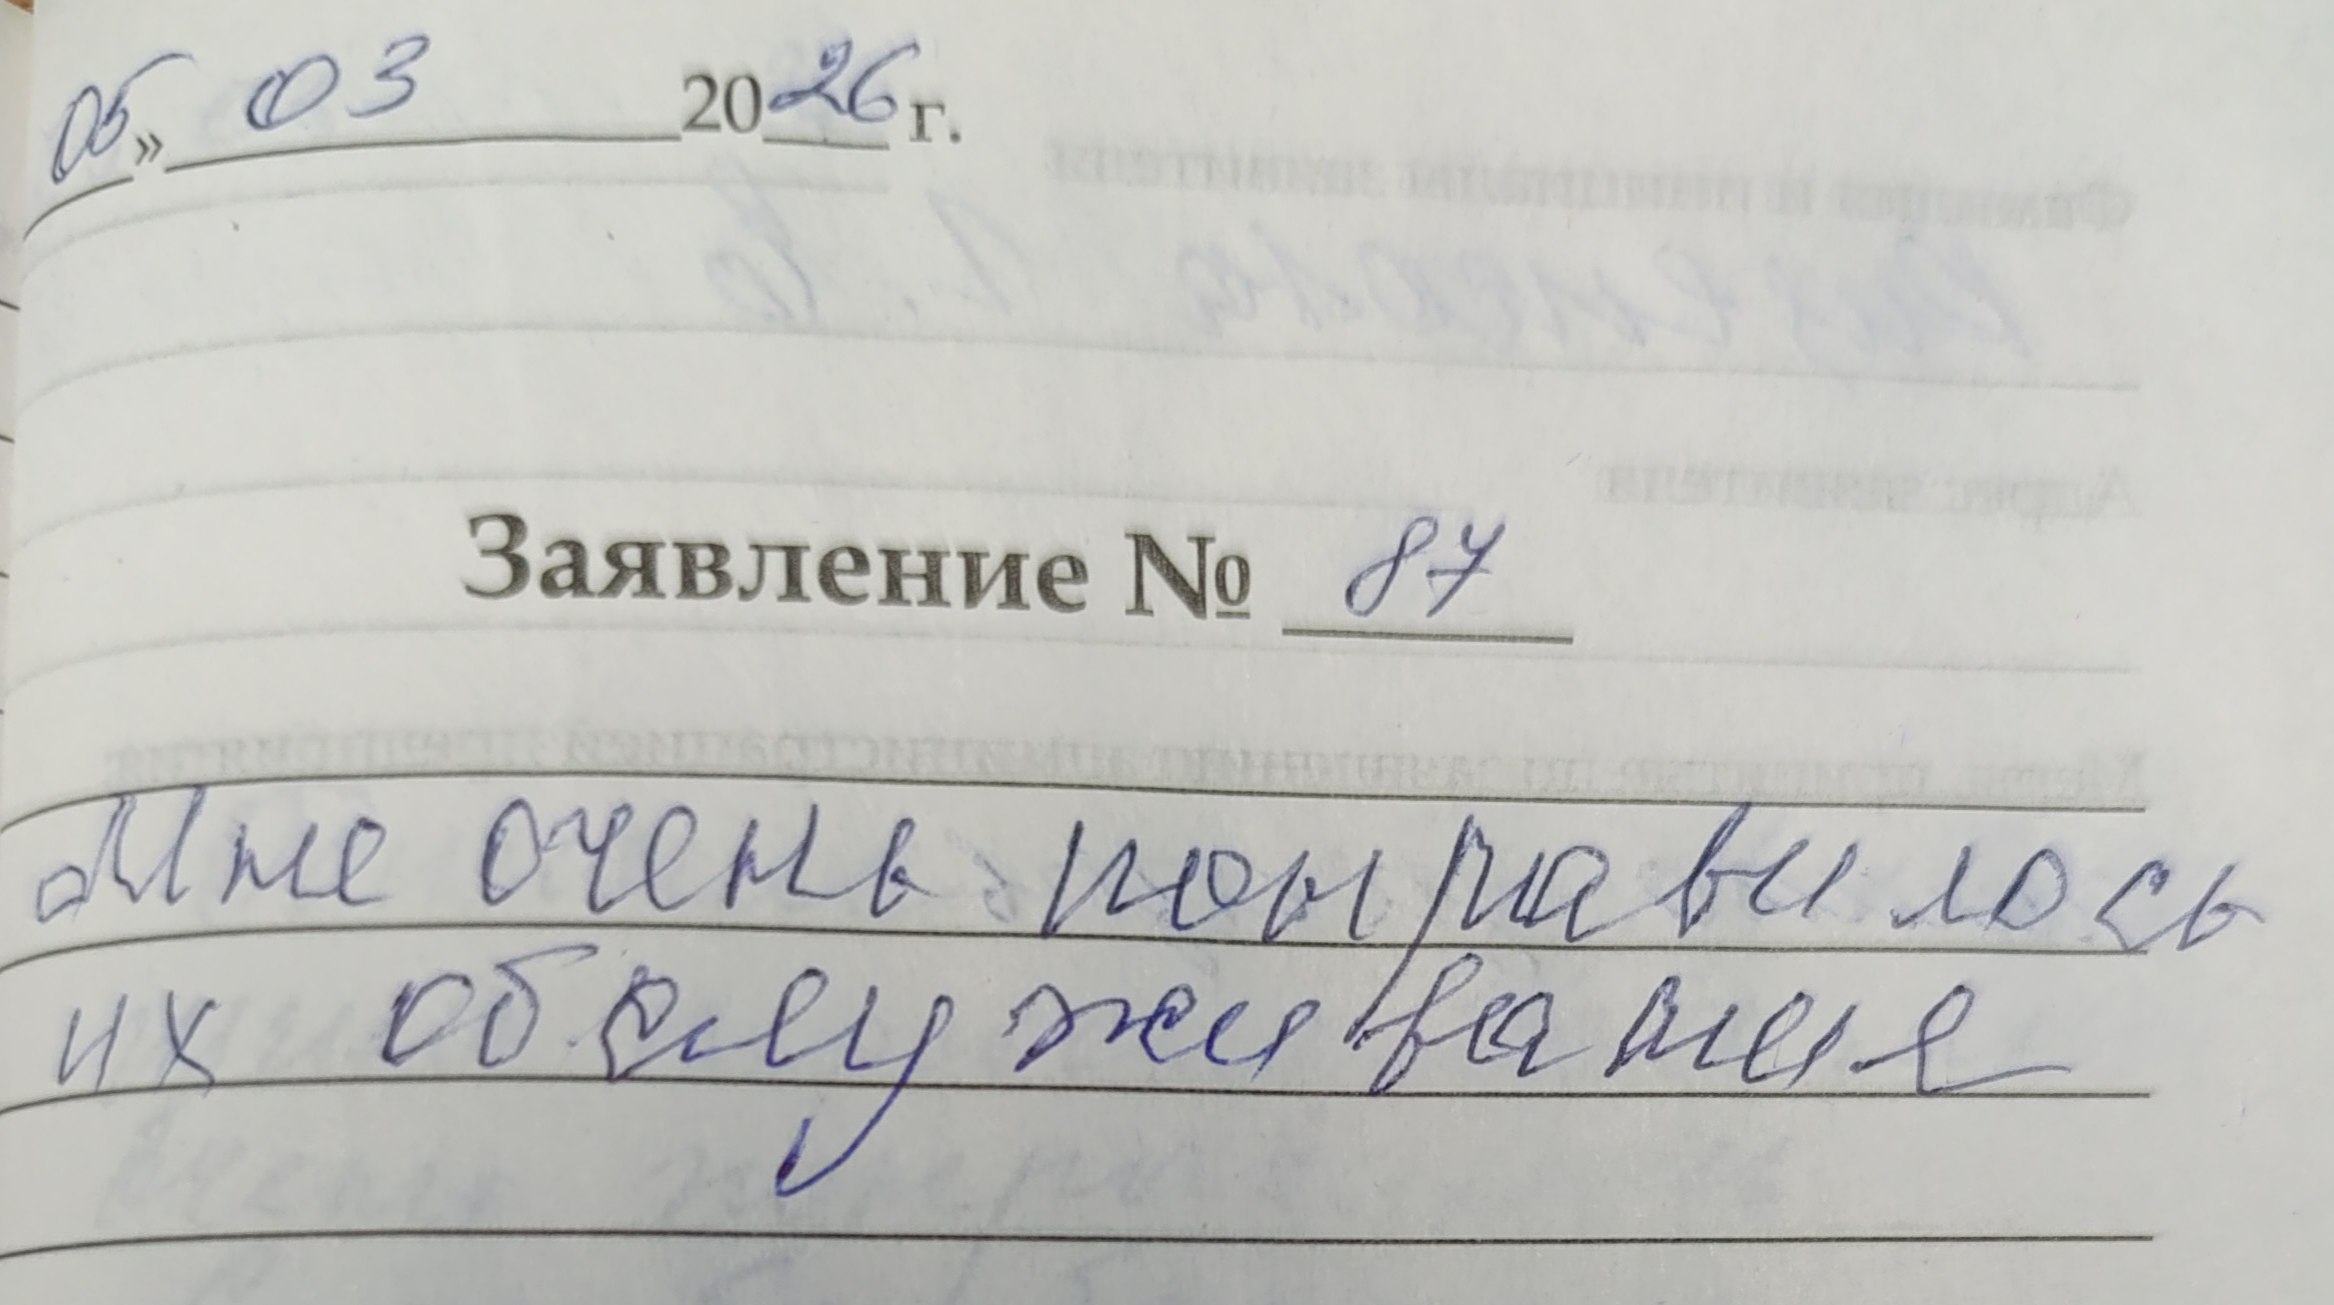 05» 03 2026 г.
Заявление № 87
Мне очень понравилось
их обслуживание